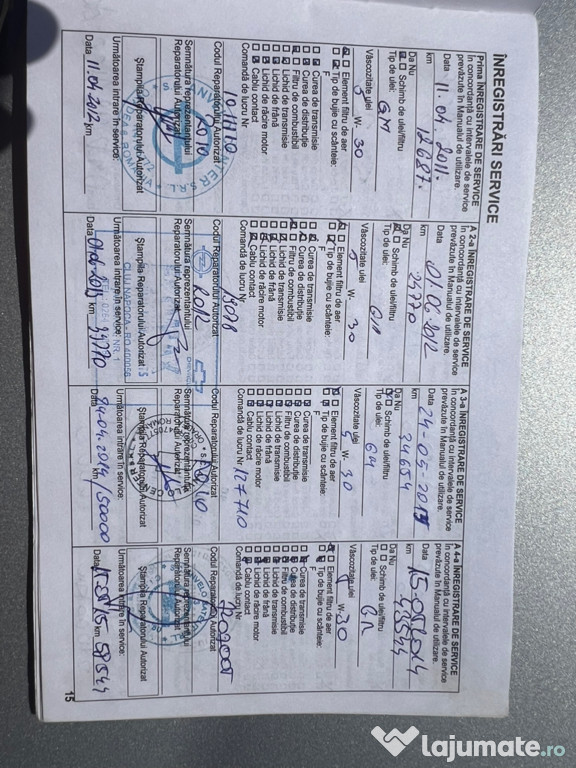 ÎNREGISTRĂRI SERVICE
Prima ÎNREGISTRARE DE SERVICE
În concordanță cu intervalele de service
prevăzute în Manualul de utilizare.
Data 11.04.2011.
km 12687.
Da Nu
Schimb de ulei/filtru
Tip de ulei: GM
Vâscozitate ulei
5 W- 30
Element filtru de aer
Tip de bujie cu scânteie:
F
Curea de transmisie
Curea de distribuție
Filtru de combustibil
Lichid de transmisie
Lichid de frână
Lichid de răcire motor
Cablu contact
Comandă de lucru Nr
Codul Reparatorului Autorizat
Semnătura reprezentantului
Reparatorului Autorizat
Ștampila Reparatorului Autorizat
Următoarea intrare în service:
Data 11.04.2012 km
A 2-a ÎNREGISTRARE DE SERVICE
În concordanță cu intervalele de service
prevăzute în Manualul de utilizare.
Data 01.06.2012
km 24770
Da Nu
Schimb de ulei/filtru
Tip de ulei: GM
Vâscozitate ulei
5 W- 30
Element filtru de aer
Tip de bujie cu scânteie:
F
Curea de transmisie
Curea de distribuție
Filtru de combustibil
Lichid de transmisie
Lichid de frână
Lichid de răcire motor
Cablu contact
Comandă de lucru Nr
Codul Reparatorului Autorizat
Semnătura reprezentantului
Reparatorului Autorizat
CLUJ NAPOCA
Ștampila Reparatorului Autorizat
Următoarea intrare în service:
Data km 39770
A 3-a ÎNREGISTRARE DE SERVICE
În concordanță cu intervalele de service
prevăzute în Manualul de utilizare.
Data 24-05-
km 34654
Da Nu
Schimb de ulei/filtru
Tip de ulei: GM
Vâscozitate ulei
5 W- 30
Element filtru de aer
Tip de bujie cu scânteie:
F
Curea de transmisie
Curea de distribuție
Filtru de combustibil
Lichid de transmisie
Lichid de frână
Lichid de răcire motor
Cablu contact
Comandă de lucru Nr 127710
Codul Reparatorului Autorizat
Semnătura reprezentantului
Reparatorului Autorizat
Ștampila Reparatorului Autorizat
Următoarea intrare în service:
Data 24-04-2014 km /50000
A 4-a ÎNREGISTRARE DE SERVICE
În concordanță cu intervalele de service
prevăzute în Manualul de utilizare.
Data
km 43544
Da Nu
Schimb de ulei/filtru
Tip de ulei:
Vâscozitate ulei
W- 30
Element filtru de aer
Tip de bujie cu scânteie:
F
Curea de transmisie
Curea de distribuție
Filtru de combustibil
Lichid de transmisie
Lichid de frână
Lichid de răcire motor
Cablu contact
Comandă de lucru Nr
Codul Reparatorului Autorizat
Semnătura reprezentantului
Reparatorului Autorizat
Ștampila Reparatorului Autorizat
Următoarea intrare în service:
Data km 58544
15
lajumate.ro